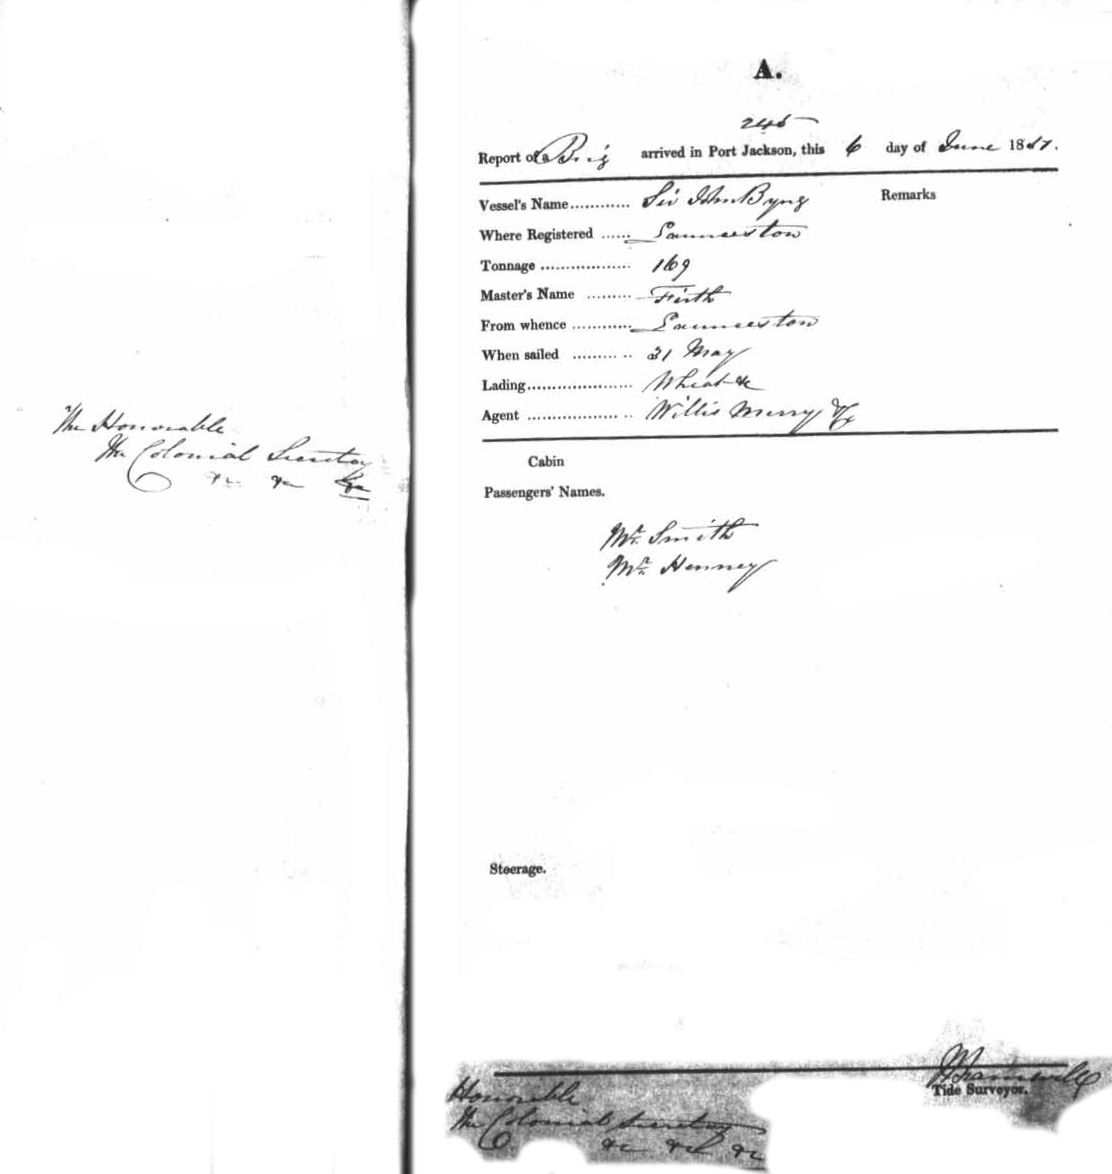 The Honorable
The Colonial Secretary
&c &c &c
A.
245
Report of a Brig arrived in Port Jackson, this 6 day of June 1851.
Vessel's Name............ Sir John Byng
Remarks
Where Registered ...... Launceston
Tonnage .................. 169
Master's Name ......... Firth
From whence ............ Launceston
When sailed ......... .. 31 May
Lading..................... Wheat &c
Agent .................. .. Willis Merry & Co
Cabin
Passengers' Names.
Mr. Smith
Mr. Henney
Steerage.
Tide Surveyor.
Honorable
The Colonial Secretary
&c &c &c